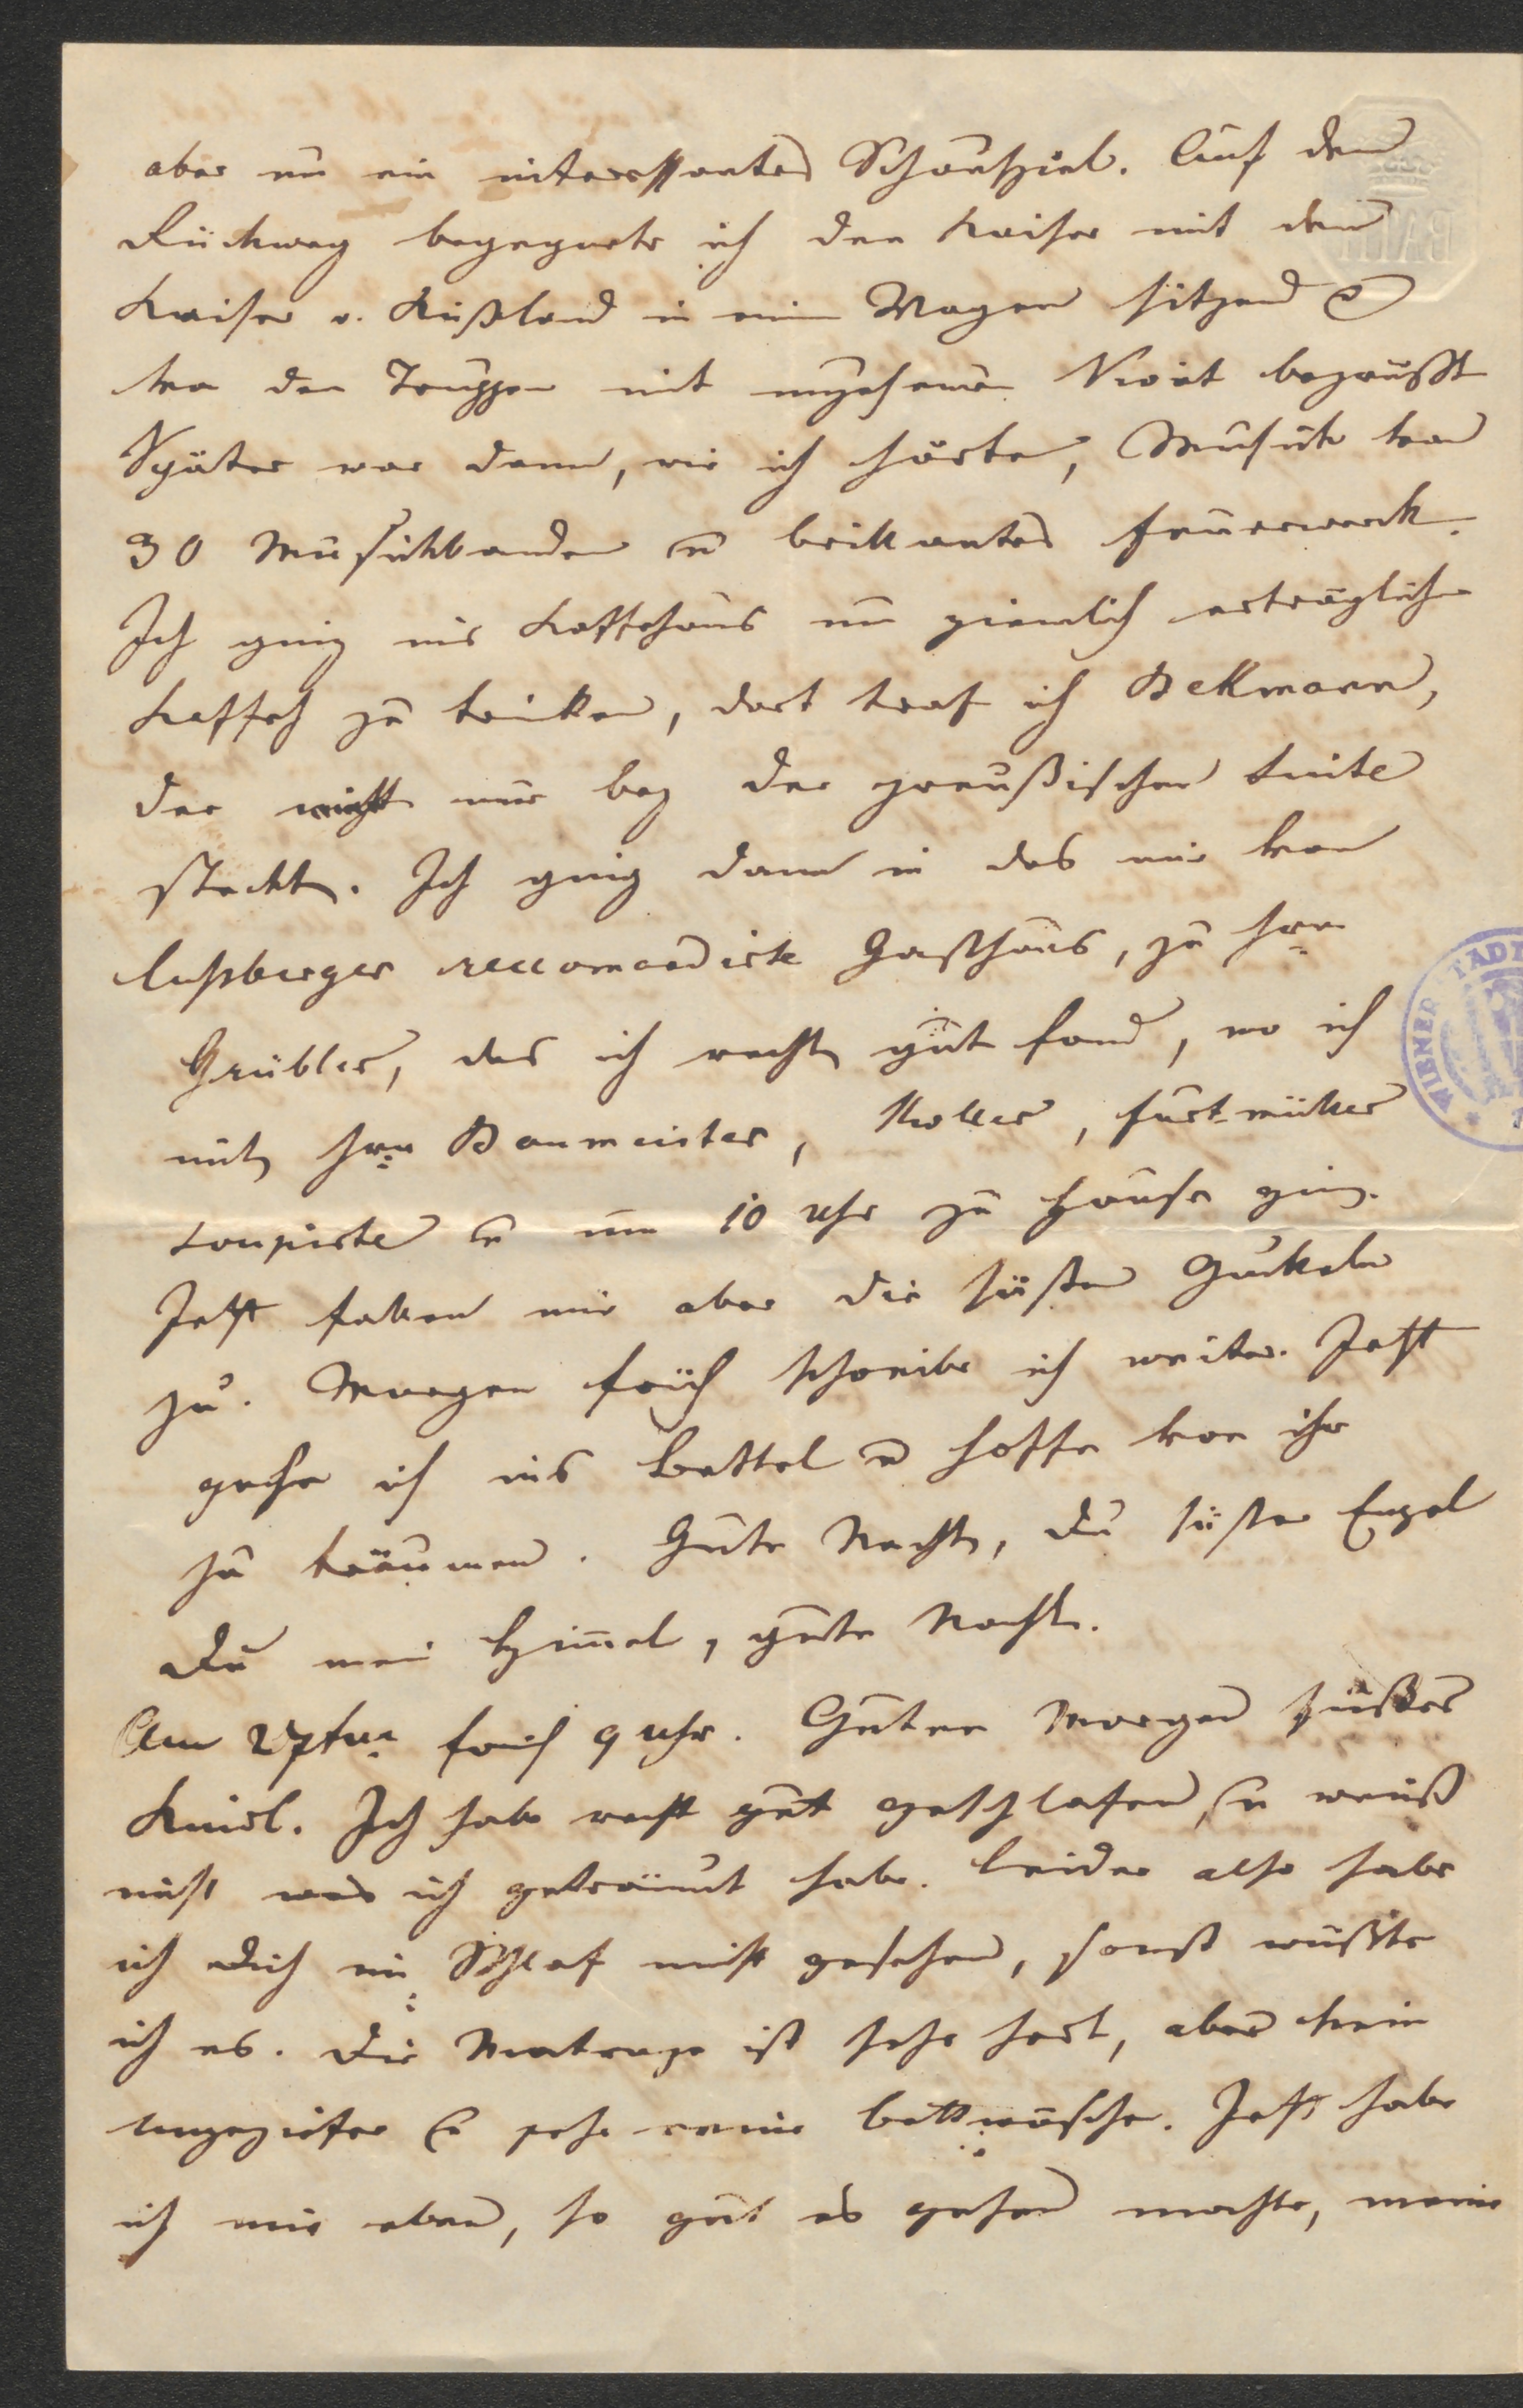 aber nū ein interessantes Schauspiel. Auf dem
Rückweg begegnete ich den Kaiser mit dem
Kaiser v. Rußland in ein Wagen sitzend &
von den Truppen mit ungeheuren Vivat begrüßt
Später war dann, wie ich hörte, Musick von
30 Musickbanden u brillantes Feuerwerk.
Ich ging ins Kaffehaus um ziemlich erträglichen
Kaffeh zu trinken, dort traf ich Bekmann,
der nicht nur bey der preußischen Suite
steckte. Ich ging dann in das mir von
Lußberger recomandirte Gasthaus, zu Hrn
Grübler, das ich recht gut fand, wo ich
mit Hrn Baumeister, Koller,
soupirte u um 10 Uhr zu Hause ging.
Jetzt fallen mir aber die süßen Guckeln
zu. Morgen früh schreibe ich weiter. Jetzt
gehe ich ins Bettel u hoffe von ihr
zu träumen. Gute Nacht, du süßer Engel
Du mein Himel, gute Nacht.
Am 27ten früh 9 Uhr. Guten Morgen süßes
Knidl. Ich habe recht gut geschlafen, u weiß
nicht was ich geträumt habe. Leider also habe
ich dich im Schlaf nicht gesehen, sonst wüßte
ich es. Die Matraze ist sehr hart, aber kein
Ungeziefer & sehr reine Bettwäsche. Jetzt habe
ich mir eben, so gut es gehen mochte, meine
WIENER STADT